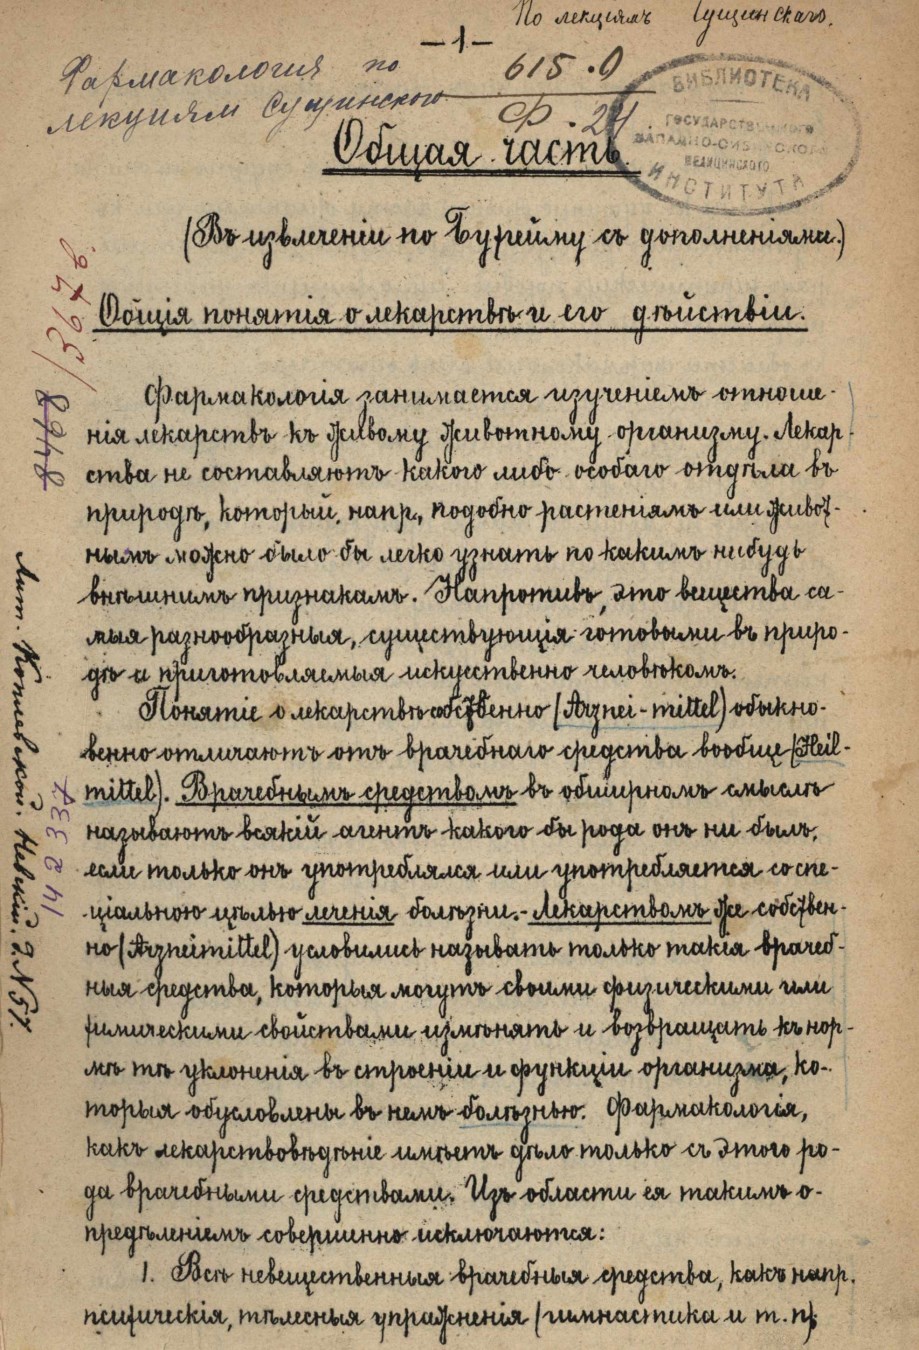 По лекціямъ Сущинскаго.
— 1 —
Фармакология по
лекциям Сущинского
615.0
Ф. 24
БИБЛИОТЕКА
ГОСУДАРСТВЕННОГО
ЗАПАДНО-СИБИРСКОГО
МЕДИЦИНСКОГО
ИНСТИТУТА
Общая часть.
(Въ извлеченіи по Бурейму съ дополненіями.)
Общія понятія о лекарствѣ и его дѣйствіи.
Фармакологія занимается изученіемъ отноше-
нія лекарствъ къ живому животному организму. Лекар-
ства не составляютъ какого либо особаго отдѣла въ
природѣ, который, напр., подобно растеніямъ или живот-
нымъ можно было бы легко узнать по какимъ нибудь
внѣшнимъ признакамъ. Напротивъ, это вещества са-
мыя разнообразныя, существующія готовыми въ приро-
дѣ и приготовляемыя искусственно человѣкомъ.
Понятіе о лекарствѣ собственно (Arznei-mittel) обыкно-
венно отличаютъ отъ врачебнаго средства вообще (Heil-
mittel). Врачебнымъ средствомъ въ обширномъ смыслѣ
называютъ всякій агентъ какого бы рода онъ ни былъ,
если только онъ употреблялся или употребляется со спе-
ціальною цѣлью леченія болѣзни. - Лекарствомъ же собствен-
но (Arzneimittel) условились называть только такія врачеб-
ныя средства, которыя могутъ своими физическими или
химическими свойствами измѣнять и возвращать къ нор-
мѣ тѣ уклоненія въ строеніи и функціи организма, ко-
торыя обусловлены въ немъ болѣзнью. Фармакологія,
какъ лекарствовѣдѣніе имѣетъ дѣло только съ этого ро-
да врачебными средствами. Изъ области ея такимъ о-
предѣленіемъ совершенно исключаются:
1. Всѣ невещественныя врачебныя средства, какъ напр.
психическія, тѣлесныя упражненія (гимнастика и т. п.)
Лит. Невскій. д. N 57.
142337